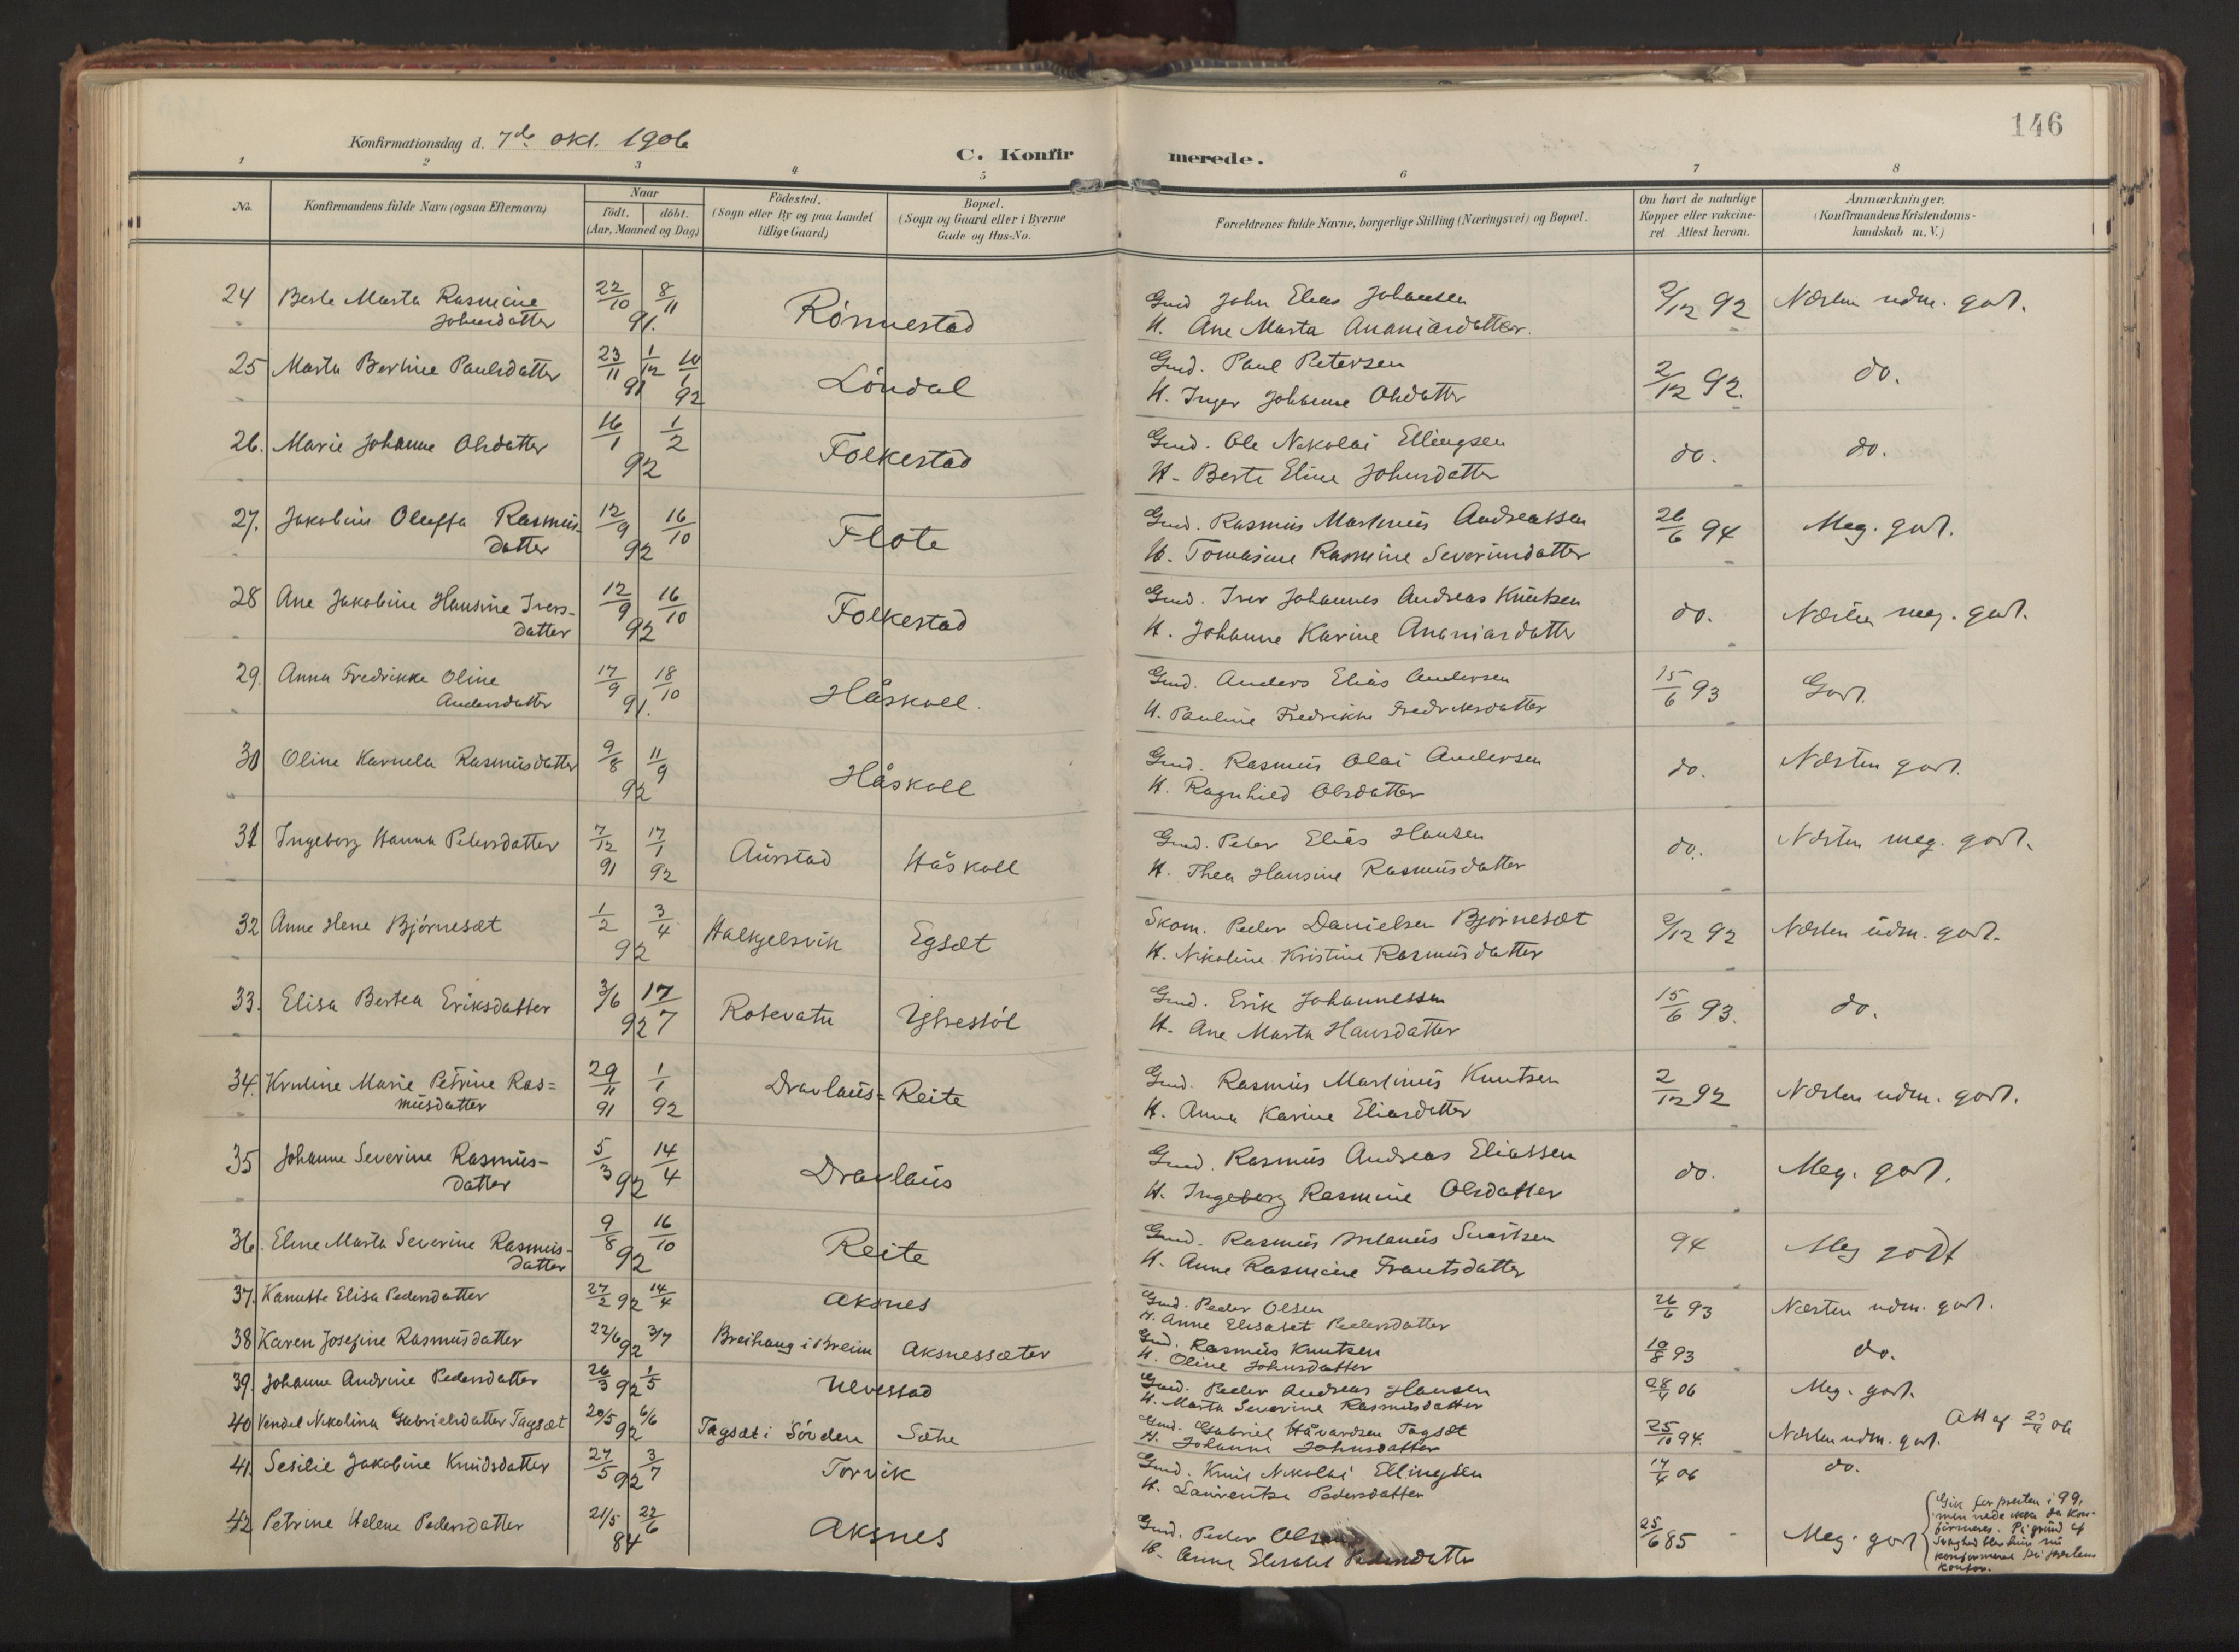 146
Konfirmationsdag d. 7de okt. 1906
C. Konfirmerede.
1 2 3 4 5 6 7 8
No.
Konfirmandens fulde Navn (ogsaa Efternavn)
Naar
født. døbt.
(Aar, Maaned og Dag)
Fødested.
(Sogn eller By og paa Landet
tillige Gaard)
Bopæl.
(Sogn og Gaard eller i Byerne
Gade og Hus-No.
Forældrenes fulde Navne, borgerlige Stilling (Næringsvei) og Bopæl.
Om havt de naturlige
Kopper eller vakcine-
ret. Attest herom.
Anmærkninger.
(Konfirmandens Kristendoms-
kundskab m. V.)
24 Berte Marta Rasmine 22/10 8/11 Rönnestad Gmd John Elias Johansen 2/12 92 Næsten udm. godt.
Johnsdatter 91. H. Ane Marta Ananiasdatter.
25 Marta Bertine Paulsdatter 23/11 1/12 10/1 Löndal Gmd. Paul Petersen 2/12 92. do.
91 92 H. Inger Johanne Olsdatter
26. Marie Johanne Olsdatter 16/1 1/2 Folkestad Gmd. Ole Nikolai Ellingsen do. do.
92 H. Berte Eline Johnsdatter
27. Jakobine Oluffa Rasmus- 12/9 16/10 Flöte Gmd. Rasmus Martinus Andreassen 26/6 94 Meg. godt.
datter 92 H. Tomasine Rasmine Severinsdatter
28 Ane Jakobine Hansine Ivers- 12/9 16/10 Folkestad Gmd. Iver Johannes Andreas Knutsen do. Næsten meg. godt.
datter 92 H. Johanne Karine Ananiasdatter
29. Anna Fredrikke Oline 17/9 18/10 Håskoll. Gmd. Anders Elias Andersen 15/6 93 Godt.
Andersdatter 91. H. Pauline Fredrikke Fredriksdatter
30 Oline Karnela Rasmusdatter 9/8 11/9 Håskoll Gmd. Rasmus Olai Andersen do. Næsten godt.
92 H. Ragnhild Olsdatter
31 Ingeborg Hanna Petersdatter 7/12 17/1 Aurstad Håskoll Gmd. Peter Elias Hansen do. Næsten meg. godt.
91 92 H. Thea Hansine Rasmusdatter
32 Anne Bjørnesæt 1/2 3/4 Halkjelsvik Egsæt Skom. Peder Danielsen Bjørnesæt 2/12 92 Næsten udm. godt.
92 H. Nikoline Kristine Rasmusdatter
33. Elisa Bertea Eriksdatter 3/6 17/7 Rotevatn Ytrestöl Gmd. Erik Johannessen 15/6 93. do.
92 H. Ane Marta Hansdatter
34. Marie Petrine Ras= 29/11 1/1 Dravlaus= Reite Gmd. Rasmus Martinus Knutsen 2/12 92 Næsten udm. godt.
musdatter 91 92 H. Anna Karine Eliasdatter
35 Johanne Severine Rasmus- 5/3 14/4 Dravlaus Gmd. Rasmus Andreas Eliassen do. Meg. godt.
datter 92 H. Ingeborg Rasmine Olsdatter
36. Eline Marta Severine Rasmus- 9/8 16/10 Reite Gmd. Rasmus 94 Meg godt
datter 92 H. Anne Rasmine Frantsdatter
37. Kanutte Elisa Pedersdatter 27/2 92 14/4 Aksnes Gmd. Peder Olsen 26/6 93 Næsten udm. godt.
H. Anne Elisabet Pedersdatter
38 Karen Josefine Rasmusdatter 22/6 3/7 Breihaug i Breim Aksnessæter Gmd. Rasmus Knutsen 10/8 93 do.
92 H. Oline Johnsdatter
39. Johanne Andrine Pedersdatter 26/3 92 1/5 Ulvestad Gmd. Peder Andreas Hansen 28/4 06 Meg. godt.
H. Marta Severine Rasmusdatter
40 Vendel Nikolina Gabrielsdatter Tagsæt 20/5 6/6 Tagsæt i Sövden Sæthe Gmd. Gabriel Håvardsen Tagsæt 25/10 94. Næsten udm. godt. Att af 06
92 H. Johanne Johnsdatter
41. Sesilie Jakobine Knudsdatter 27/5 3/7 Torvik Gmd. Knut Nikolai Ellingsen 17/4 06 do.
92 H. Laurentse Pedersdatter
42 Petrine Helene Pedersdatter 21/5 22/6 Aksnes Gmd. Peder Olsen 25/6 85 Meg. godt
84 H. Anne Elisabet Pedersdatter
Gik for presten i 99,
men ikke da kon-
firmeres. På grund af
svaghed blev hun nu
konfirmeret på prestens
kontor.